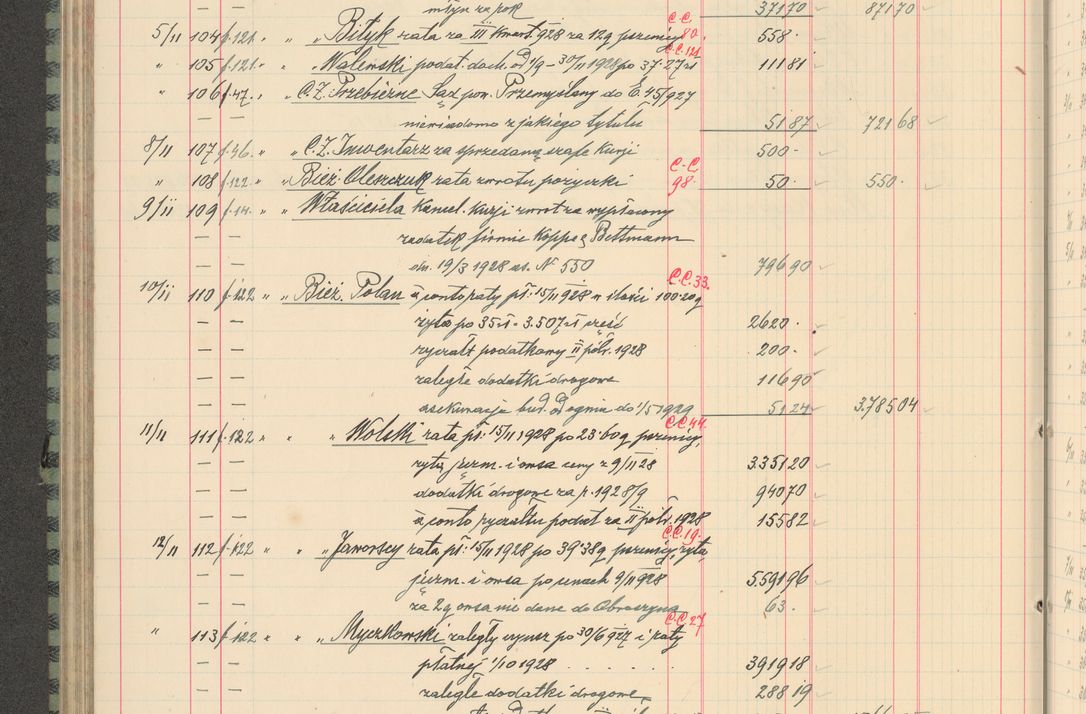 — — młyn za rok 37170 87170
C.C.
5/11 104 f.121. " " Bityk rata za III kwart. 928 za 12q pszenicy 80. 558.
C.C. 121
" 105 f.121. " " Walewski podat. doch. od 1/9 – 30/11 1928 po 37.27 zł 11181
" 106 f.47. " " C.Z. Przebierne Sąd pow. Przemyślany do E. 45/927
— — niewiadomo z jakiego tytułu 5187 72168
8/11 107 f.46. " " C.Z. Inwentarz za sprzedaną szafę Kurji 500.
C.C.
" 108 f.122 " " Bież. Oleszczuk rata zwrotu pożyczki 98. 50. 550.
9/11 109 f.14. " " Właściciela Kancel. Kurji zwrot za wypłacony
— — zadatek firmie Koppe & Bettmann
— — dn. 19/3 1928 as. № 550 79690
C.C. 33.
10/11 110 f.122 " " Bież. Polan à conto raty pł. 15/11 928 w ilości 100.20q
— — żyta po 35 zł = 3.507 zł część 2620.
— — ryczałt podatkowy II półr. 1928 200.
— — zaległe dodatki drogowe 11690
— — asekuracja bud. od ognia do 1/5 1929 5124 378504
C.C. 44.
11/11 111 f.122 " " " Wolski rata pł. 15/11 1928 po 23.60q pszenicy,
— — żyta, jęczm. i owsa ceny z 9/11 28 335120
— — dodatki drogowe za r. 1928/9 94070
— — à conto ryczałtu podat za II półr. 1928 15582
C.C. 19.
12/11 112 f.122 " " " Jaworscy rata pł. 15/11 1928 po 39.38q pszenicy, żyta,
— — jęczm. i owsa po cenach 9/11 928 559196
— — za 2q owsa nie dane do Obroszyna 63.
C.C. 27
" 113 f.122 " " " Myczkowski zaległy czynsz po 30/6 927 i raty
— — płatnej 1/10 1928 . . . . . . 391918
— — zaległe dodatki drogowe, 28819